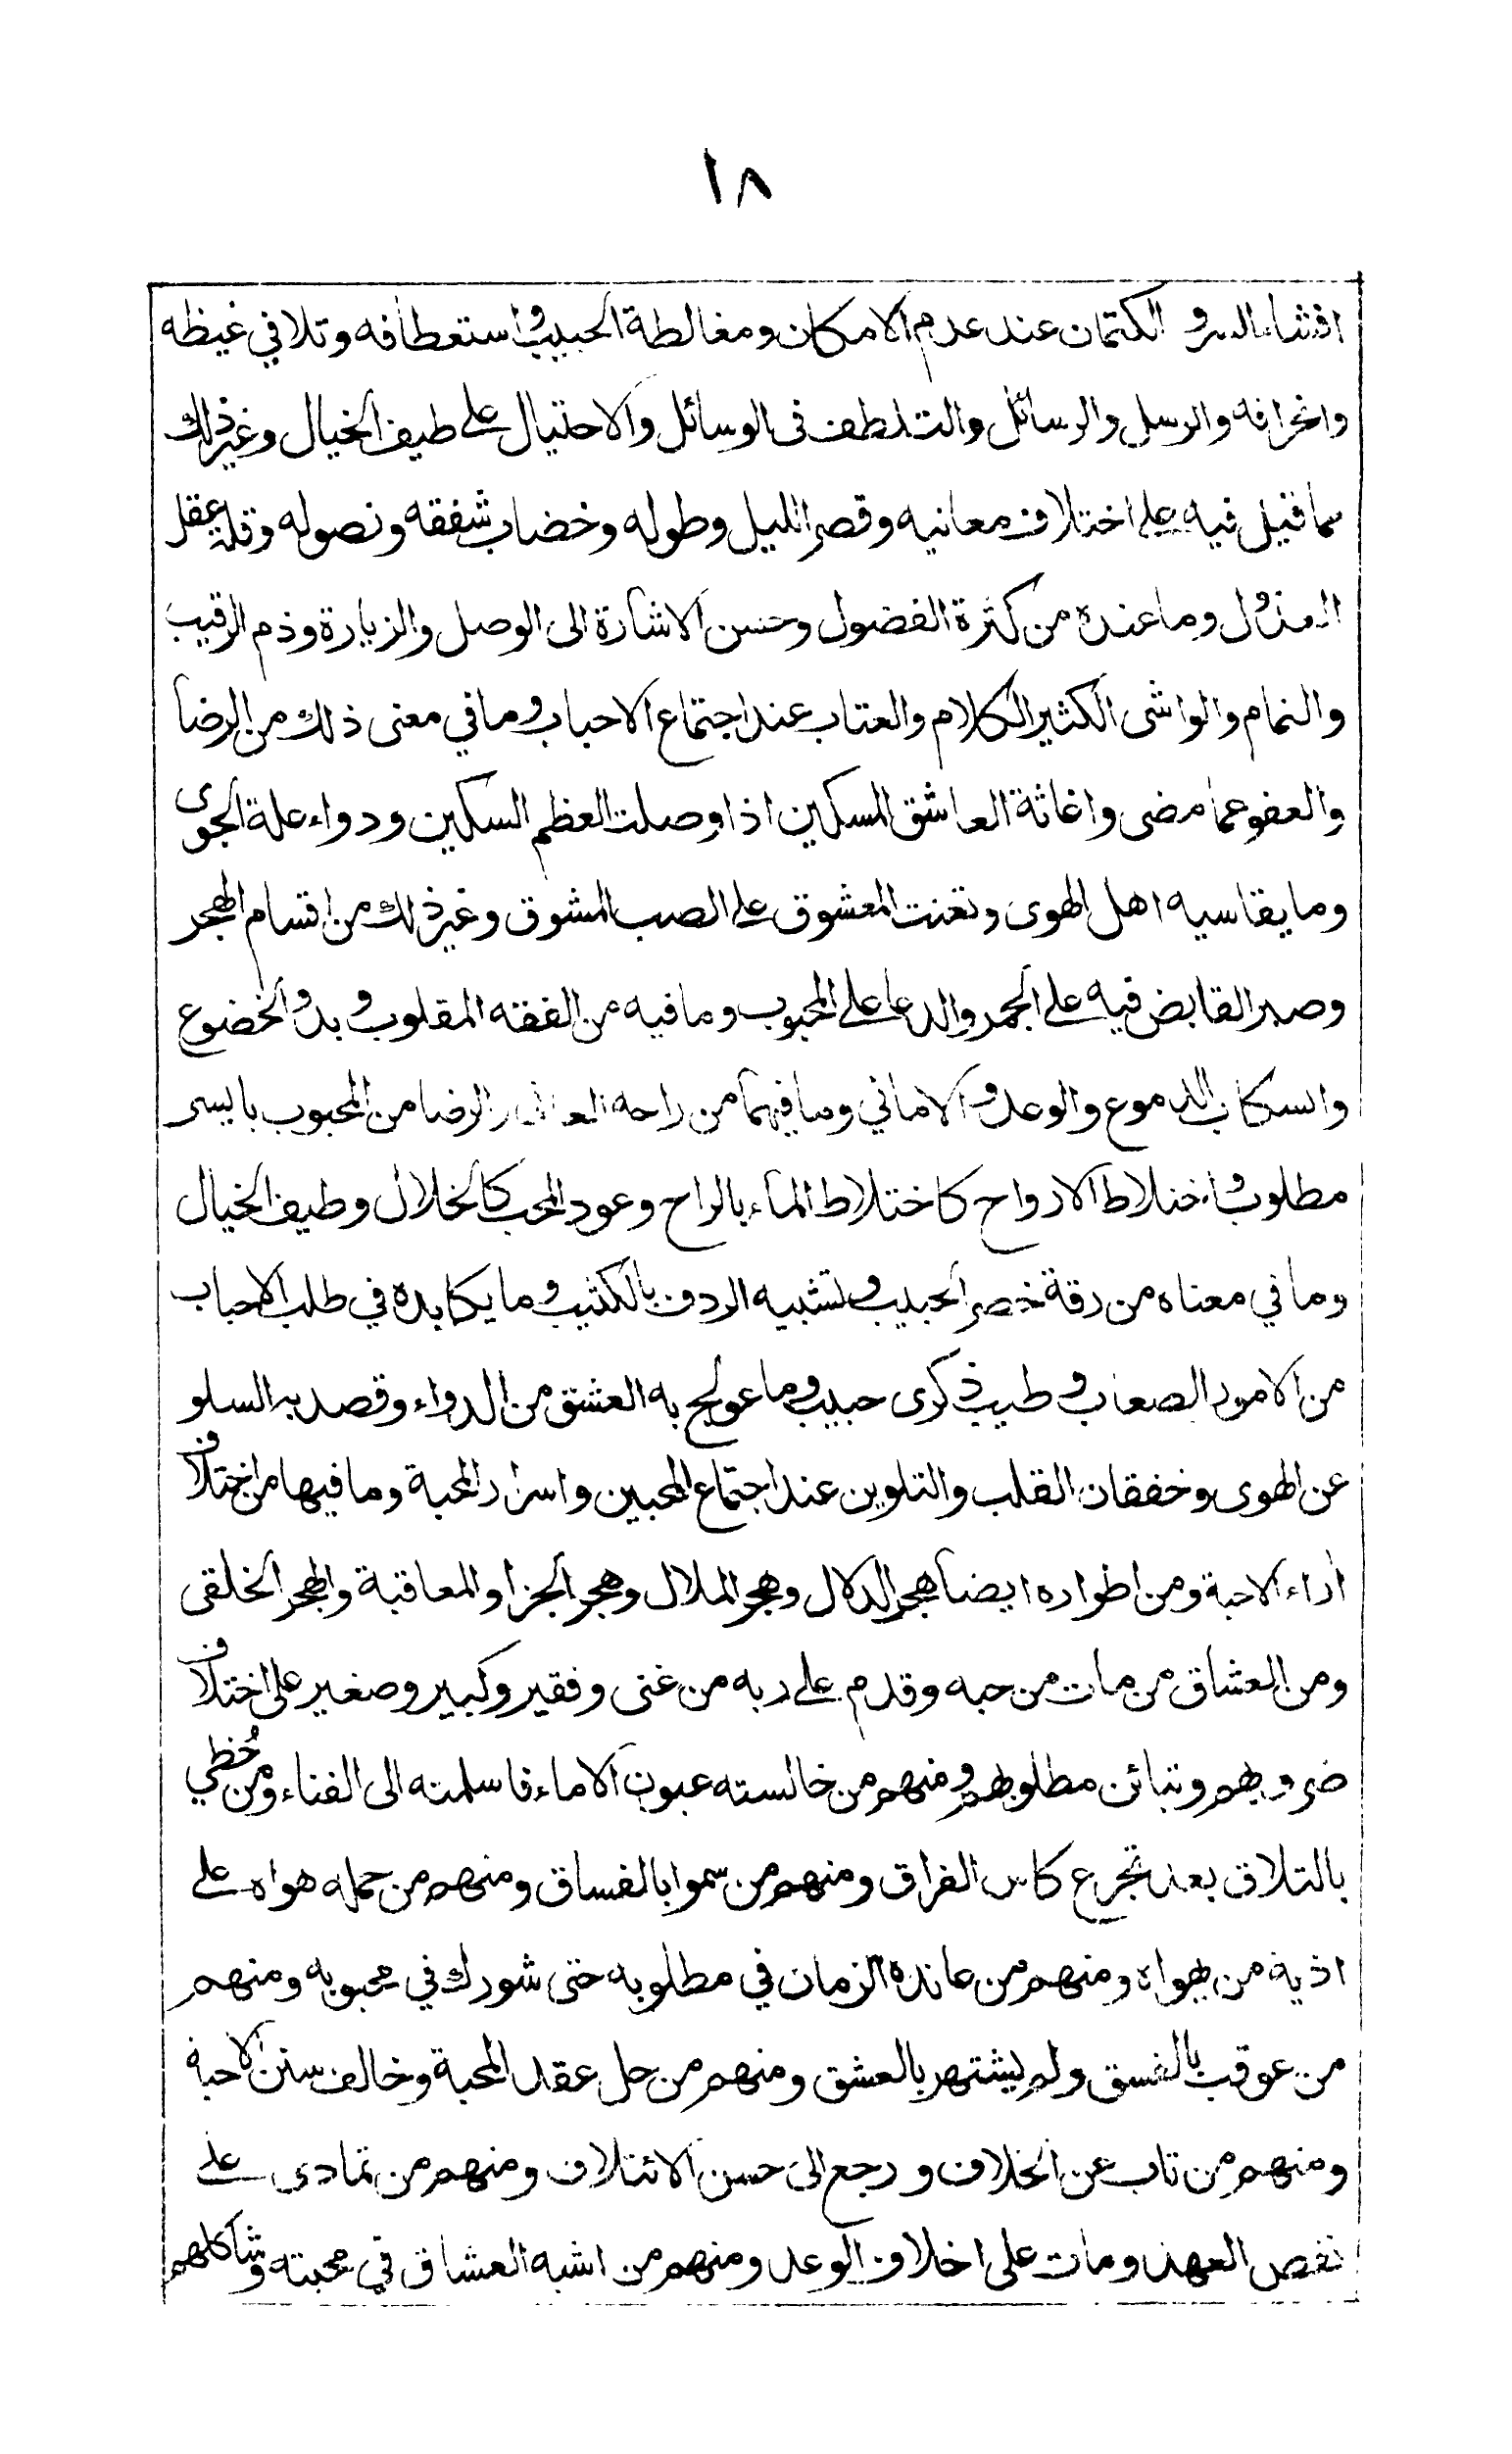 ١٨
افشاء السر والكتمان عند عدم الامكان ومغالطة الحبيب واستعطافه وتلافي غيظه
وانحرافه والرسل والرسائل والتلطف في الوسائل والاحتيال على طيف الخيال وغير ذلك
مما قيل فيه على اختلاف معانيه وقصر الليل وطوله وخضاب شفقه ونصوله وقلة عقل
العذول وما عنده من كثرة الفضول وحسن الاشارة الى الوصل والزيارة وذم الرقيب
والنمام والواشى الكثير الكلام والعتاب عند اجتماع الاحباب وما في معنى ذلك من الرضا
والعفو عما مضى واغاثة العاشق المسكين اذا وصلت العظم السكين ودواء علة الجوى
وما يقاسيه اهل الهوى وتعنت المعشوق على الصب المشوق وغير ذلك من اقسام الهجر
وصبر القابض فيه على الجمر والدعا على المحبوب وما فيه من الفقه المقلوب وبدؤ الخضوع
وانسكاب الدموع والوعد والاماني وما فيهما من راحة والرضا من المحبوب بايسر
مطلوب واختلاط الارواح كاختلاط الماء بالراح وعود المحب كالخلال وطيف الخيال
وما في معناه من رقة خصر الحبيب وتشبيه الردف بالكثيب وما يكابده في طلب الاحباب
من الامور الصعاب وطيب ذكرى حبيب وما عولج به العشق من الدواء وقصد به السلو
عن الهوى وخفقان القلب والتلوين عند اجتماع المحبين واسرار المحبة وما فيها من اختلاف
اراء الاحبة ومن اطواره ايضا هجر الدلال وهجر الملال وهجر الجزا والمعاقبة والهجر الخلقى
ومن العشاق من مات من حبه وقدم على ربه من غنى وفقير وكبير وصغير على اختلاف
ضروبهم وتبائن مطلوبهم ومنهم من خالسته عيون الاماء فاسلمته الى الفناء ومن حُظي
بالتلاق بعد تجرع كاس الفراق ومنهم من سموا بالفساق ومنهم من حمله هواه على
اذية من يهواه ومنهم من عانده الزمان في مطلوبه حتى شورك في محبوبه ومنهم
من عوقب بالفسق ولم يشتهر بالعشق ومنهم من حل عقد المحبة وخالف سنن الاحبة
ومنهم من تاب عن الخلاف ورجع الى حسن الائتلاف ومنهم من تمادى على
نقض العهد ومات على اخلاف الوعد ومنهم من اشبه العشاق في محبته وشاكلهم